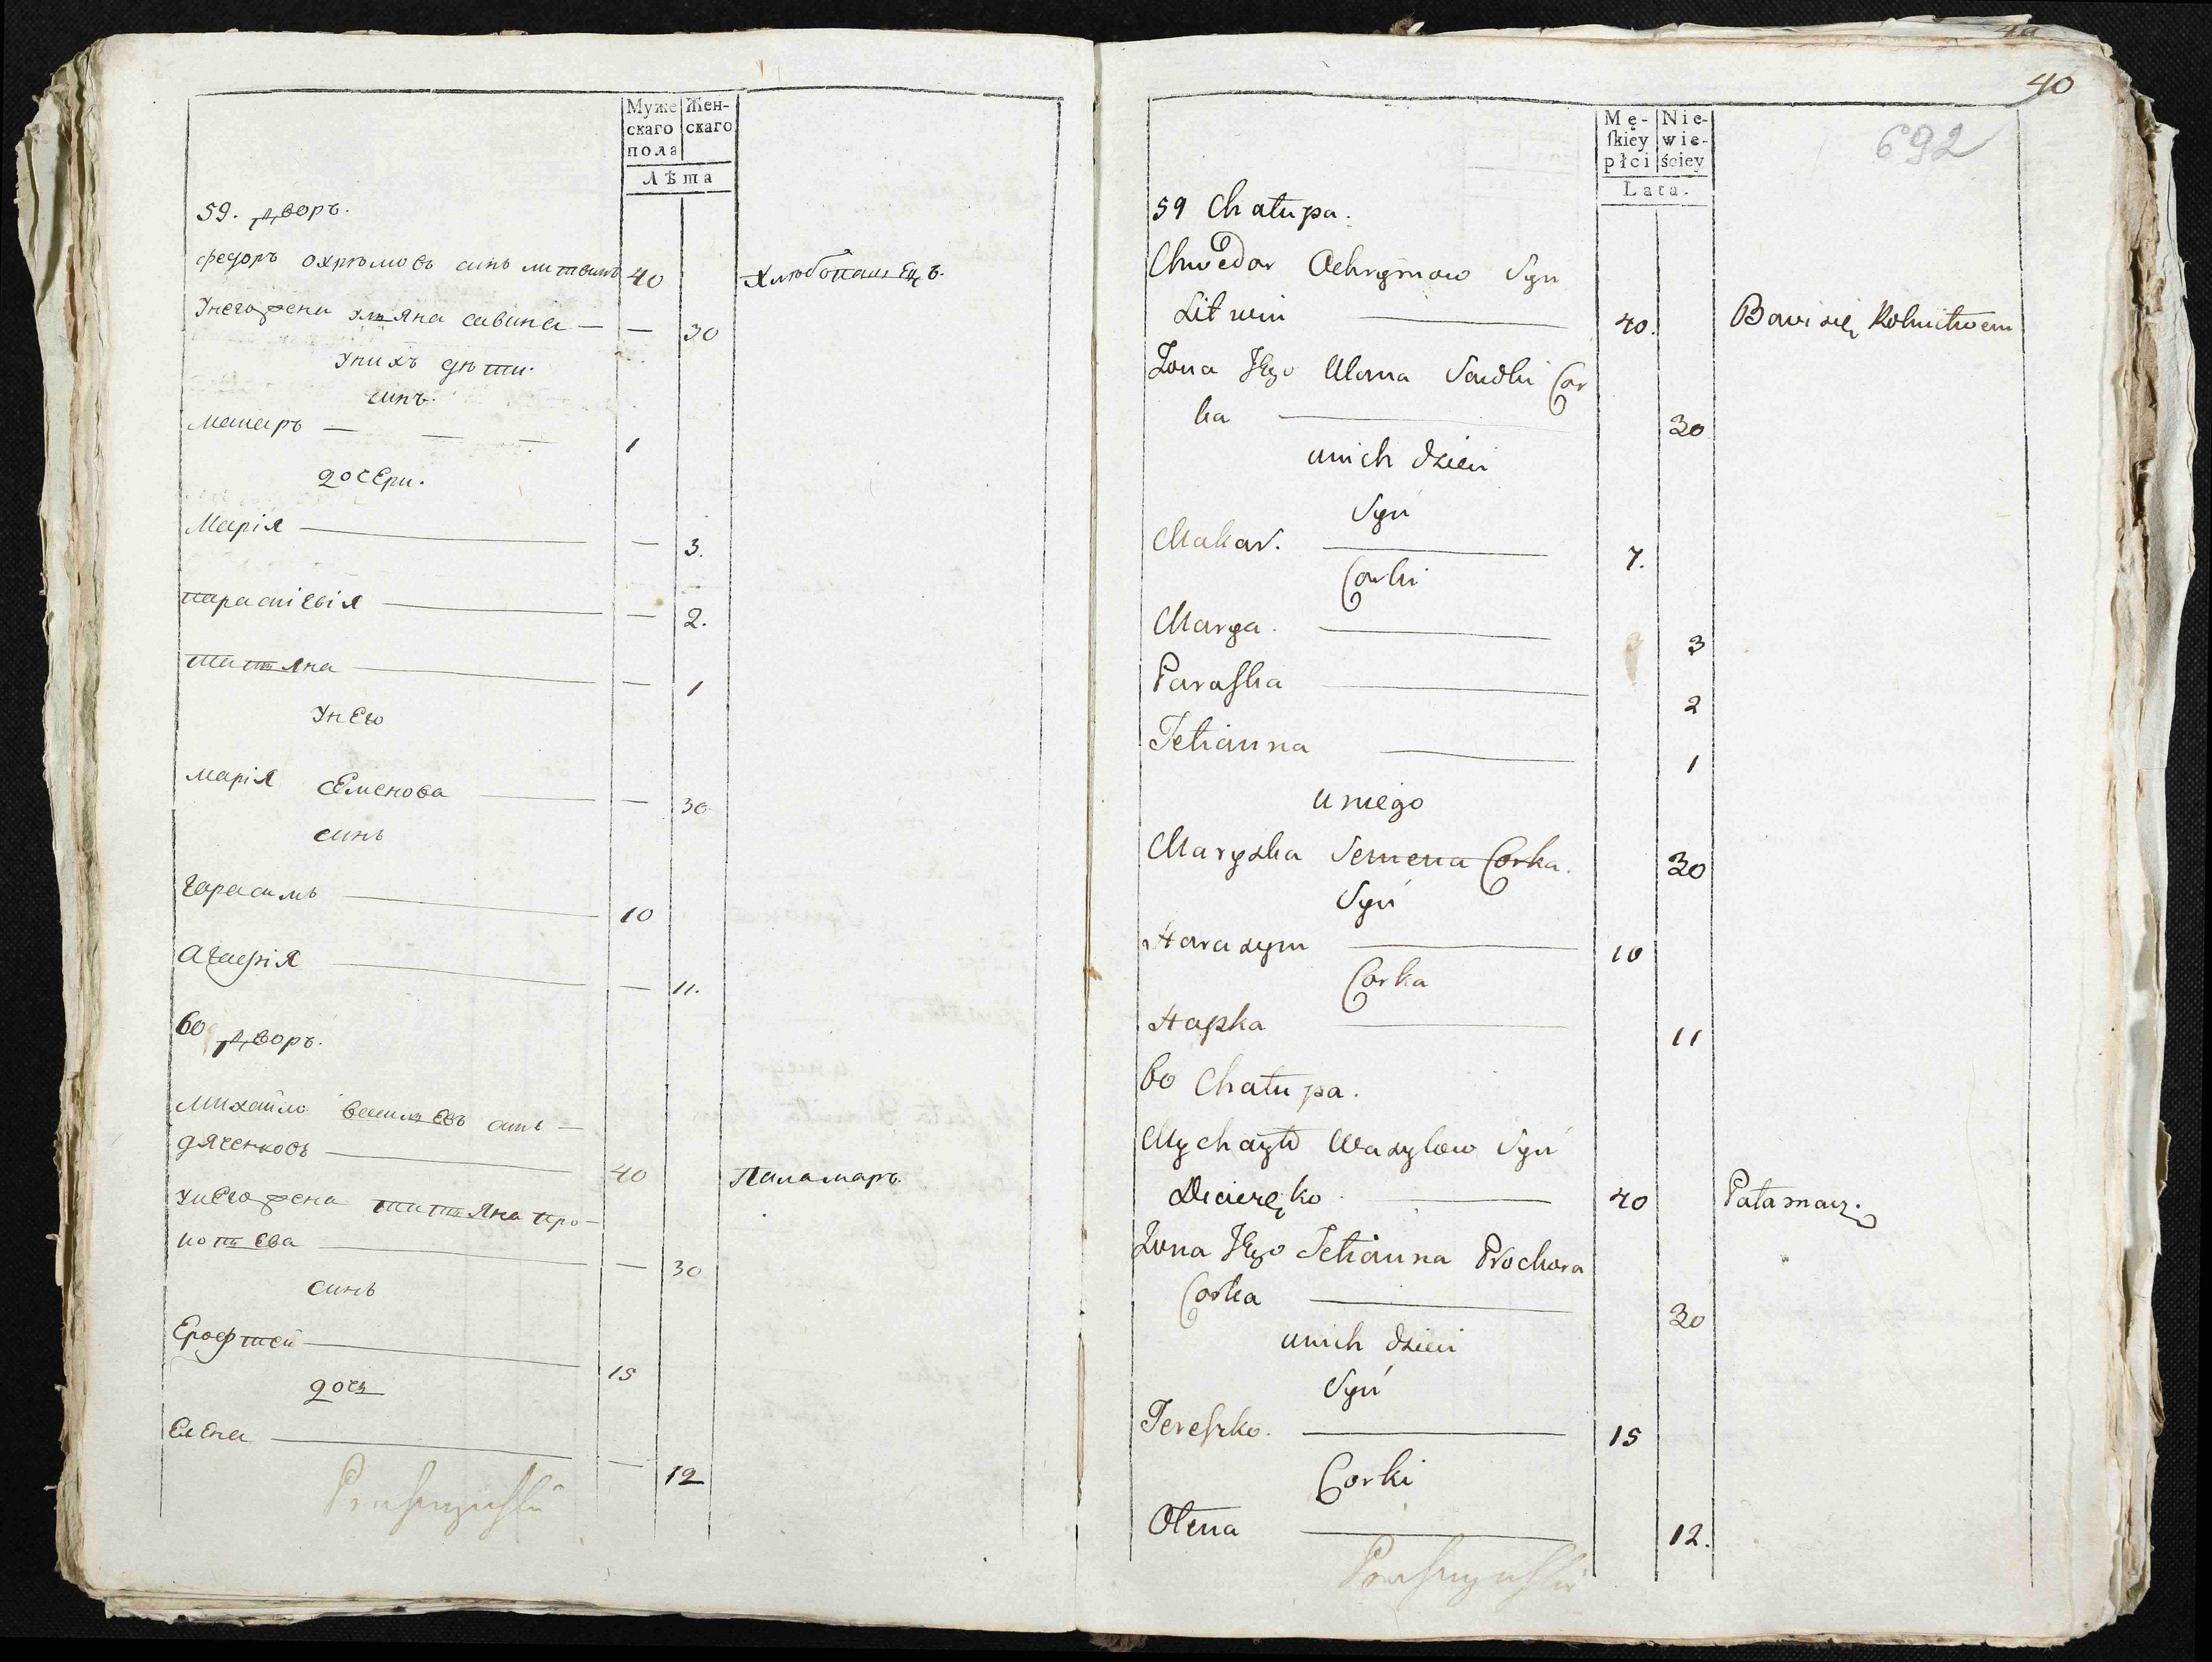 Муже
скаго
пола
Жен-
скаго
Лѣта
59. дворъ.
федоръ охрѣмовъ синъ литвинъ 40 хлѣбопашецъ.
Унего жена уляна савина — — 30
Унихъ дѣти.
синъ.
макаръ — 1
дочери.
Марія — — 3.
параскіевія — — 2.
татяна — — 1
Унею
марія семенова — — 30
синъ
гарасимъ — 10
агафія — — 11.
60 дворъ.
михайло василевъ синъ —
дяченковъ — 40 паламаръ.
унего жена татяна про-
копева — — 30
синъ
Ерофтей — 15
дочь
Елена — — 12
40
692
Mę-
skiey
płci
Nie-
wie-
ściey
Lata.
59 Chałupa.
Chwedor Ochrymow Syn
Litwin — 40. Bawi się Rolnictwem
Żona Jego Ulana Sawki Cor
ka — 30
u nich dzieci
Syn
Makar. — 7.
Corki
Marya. — 3
Paraska — 2
Tetianna — 1
u niego
Maryska Semena Corka. 30
Syn
Harasym — 10
Corka
Hapka — 11
60 Chałupa.
Mychayło Wasylow Syn
Diaczęko — 40 Pałamarz.
Żona Jego Tetianna Prochora
Corka — 30
u nich dzieci
Syn
Tereszko. — 15
Corki
Ołena — 12.